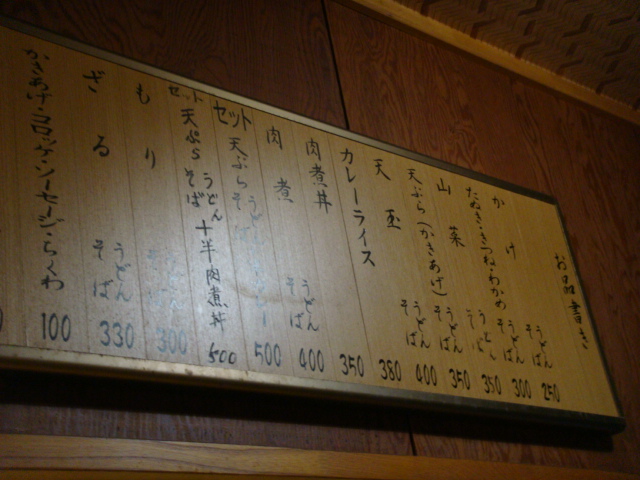 お品書き
かけ うどん そば 250
たぬき・きつね・わかめ うどん そば 300
山菜 うどん そば 350
天ぷら(かきあげ) うどん そば 350
天玉 うどん そば 400
カレーライス 380
肉煮丼 350
肉煮 うどん そば 400
セット 天ぷら うどん そば 500
セット 天ぷら うどん そば +半肉煮丼 500
もり うどん そば 300
ざる うどん そば 330
かきあげ・コロッケ・ソーセージ・ちくわ 100